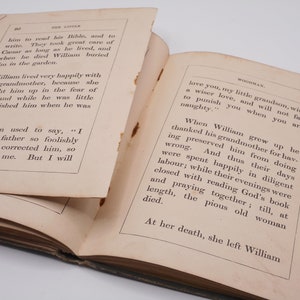 60
OUR LITTLE
him to read his Bible, and to
write. They took great care of
Caesar as long as he lived, and
when he died William buried
in the garden.
William lived very happily with
grandmother, because she
him up in the fear of
and while he was little
punished him when he was
used to say, "I
father so foolishly
corrected him, so
me. But I will
WOODMAN.
love you, my little grandson, w
a wiser love, and will not
to punish you when you
naughty."
When William grew up he
thanked his grandmother for hav-
ing preserved him from doing
wrong. And thus their days
were spent happily in diligent
labour; while their evenings were
closed with reading God's book
and praying together; till, at
length, the pious old woman
died.
At her death, she left William